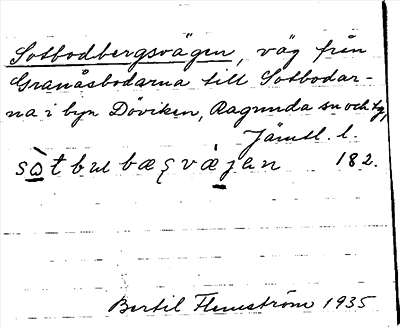 Sotbodbergsvägen, väg från
Granåsbodarna till Sotbodar-
na i byn Döviken, Ragunda sn och tg,
Jämtl. l.
sòtbubæʂvæ̀jen 182.
Bertil Flemström 1935